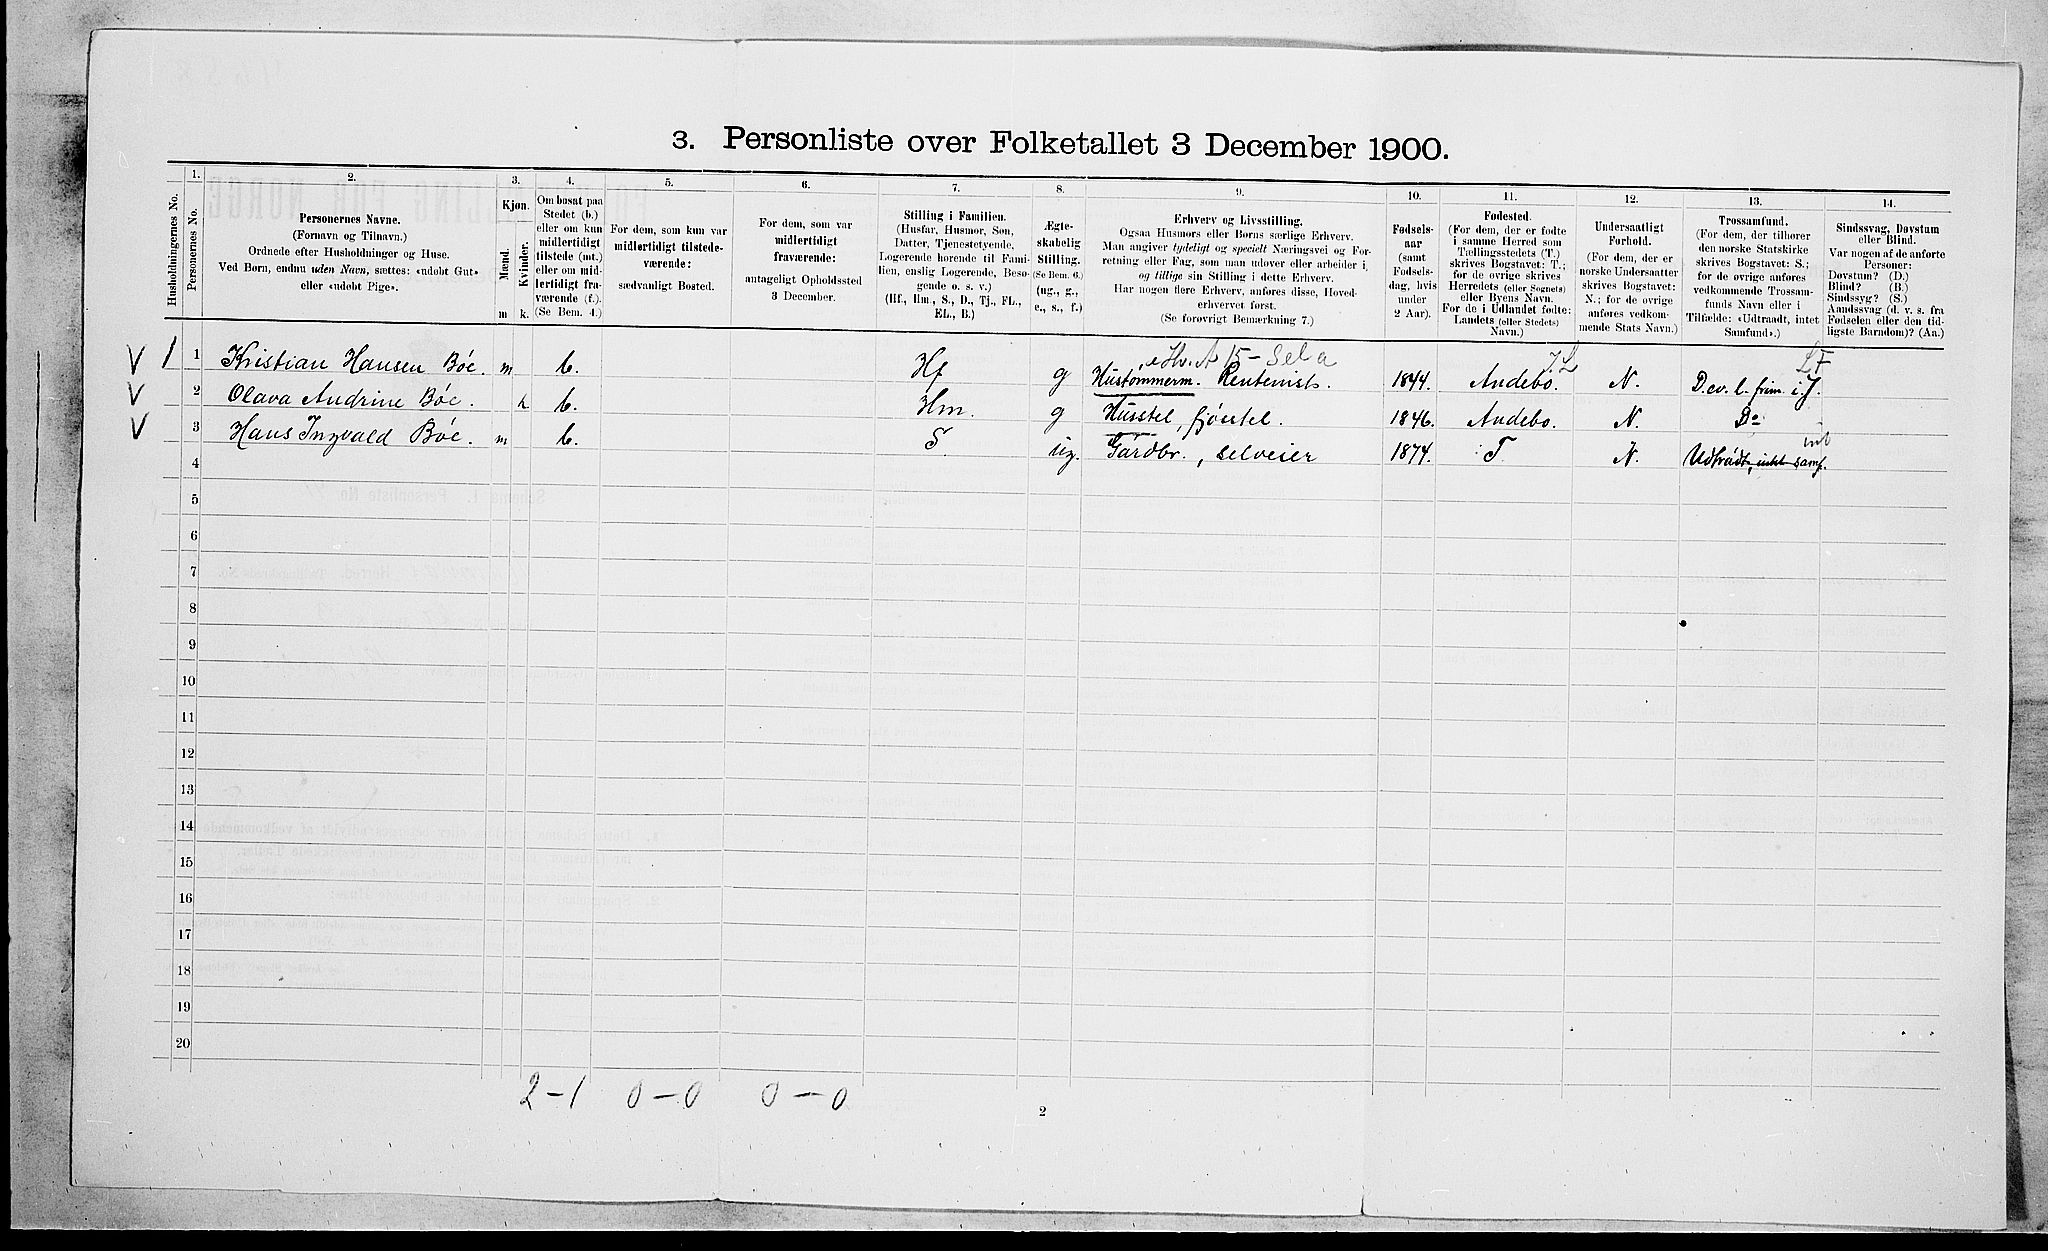 3. Personliste over Folketallet 3 December 1900.
1. 2. 3. 4. 5. 6. 7. 8. 9. 10. 11. 12. 13. 14.
Husholdningernes No.
Personernes No.
Personernes Navne.
(Fornavn og Tilnavn.)
Ordnede efter Husholdninger og Huse.
Ved Børn, endnu uden Navn, sættes: «udøbt Gut»
eller «udøbt Pige».
Kjøn.
Mænd.
Kvinder.
m k.
Om bosat paa
Stedet (b.)
eller om kun
midlertidigt
tilstede (mt.)
eller om mid-
lertidigt fra-
værende (f.).
(Se Bem. 4.)
For dem, som kun var
midlertidigt tilstede-
værende:
sædvanligt Bosted.
For dem, som var
midlertidigt
fraværende:
antageligt Opholdssted
3 December.
Stilling i Familien.
(Husfar, Husmor, Søn,
Datter, Tjenestetyende,
Logerende hørende til Fami-
lien, enslig Logerende, Besø-
gende o. s. v.)
(Hf., Hm., S., D., Tj., FL.,
EL., B.)
Ægte-
skabelig
Stilling.
(Se Bem. 6.)
(ug., g.,
e., s., f.)
Erhverv og Livsstilling.
Ogsaa Husmors eller Børns særlige Erhverv.
Man angiver tydeligt og specielt Næringsvei og For-
retning eller Fag, som man udøver eller arbeider i,
og tillige sin Stilling i dette Erhverv.
Har nogen flere Erhverv, anføres disse, Hoved-
erhvervet først.
(Se forøvrigt Bemærkning 7.)
Fødsels-
aar
(samt
Fødsels-
dag, hvis
under
2 Aar).
Fødested.
(For dem, der er fødte
i samme Herred som
Tællingsstedets (T.)
skrives Bogstavet: T.;
for de øvrige skrives
Herredets (eller Sognets)
eller Byens Navn.
For de i Udlandet fødte:
Landets (eller Stedets)
Navn.)
Undersaatligt
Forhold.
(For dem, der er
norske Undersaatter
skrives Bogstavet:
N.; for de øvrige
anføres vedkom-
mende Stats Navn.)
Trossamfund.
(For dem, der tilhører
den norske Statskirke
skrives Bogstavet: S.;
for de øvrige anføres
vedkommende Trossam-
funds Navn eller i
Tilfælde: «Udtraadt, intet
Samfund».)
Sindssvag, Døvstum
eller Blind.
Var nogen af de anførte
Personer:
Døvstum? (D.)
Blind? (B.)
Sindssyg? (S.)
Aandssvag (d. v. s. fra
Fødselen eller den tid-
ligste Barndom)? (Aa.)
15 - Sel a
LF
V 1 1 Kristian Hansen Bøe. m b. Hf g Hustømmerm. Rentenist. 1844. Andebo. N. D. ev. l. frim. i. J.
V 2 Olava Andrine Bøe. k b. Hm. g Husstel, fjøsstel. 1846. Andebo. N. Do
int
V 3 Hans Ingvald Bøe. m b. S. ug. Gårdbr., selveier 1874. T. N. Udtrådt, inkt samf.
4
5
6
7
8
9
10
11
12
13
14
15
16
17
18
19
20
2-1 0-0 0-0
2